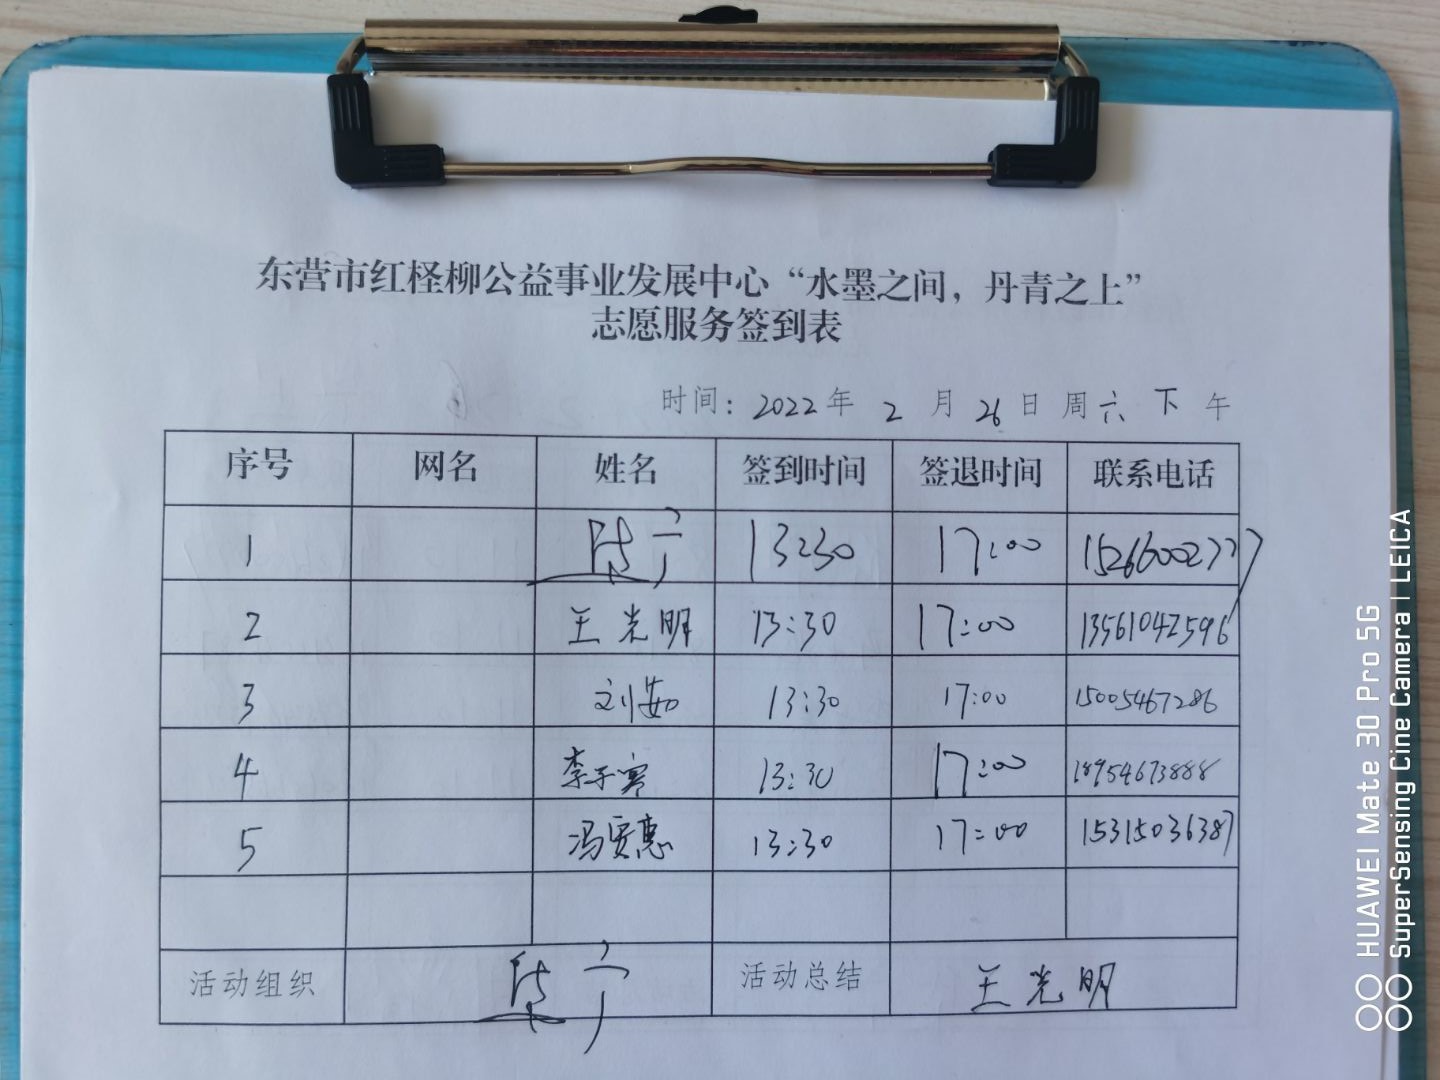 东营市红柽柳公益事业发展中心“水墨之间，丹青之上”
志愿服务签到表
时间：2022年 2 月 26 日 周六 下 午
序号 网名 姓名 签到时间 签退时间 联系电话
1 13:30 17:00 15266002777
2 王光明 13:30 17:00 13561042596
3 刘茹 13:30 17:00 15005467286
4 李子寒 13:30 17:00 18954673888
5 冯贤惠 13:30 17:00 15315036387
活动组织 活动总结 王光明
HUAWEI Mate 30 Pro 5G
SuperSensing Cine Camera | LEICA